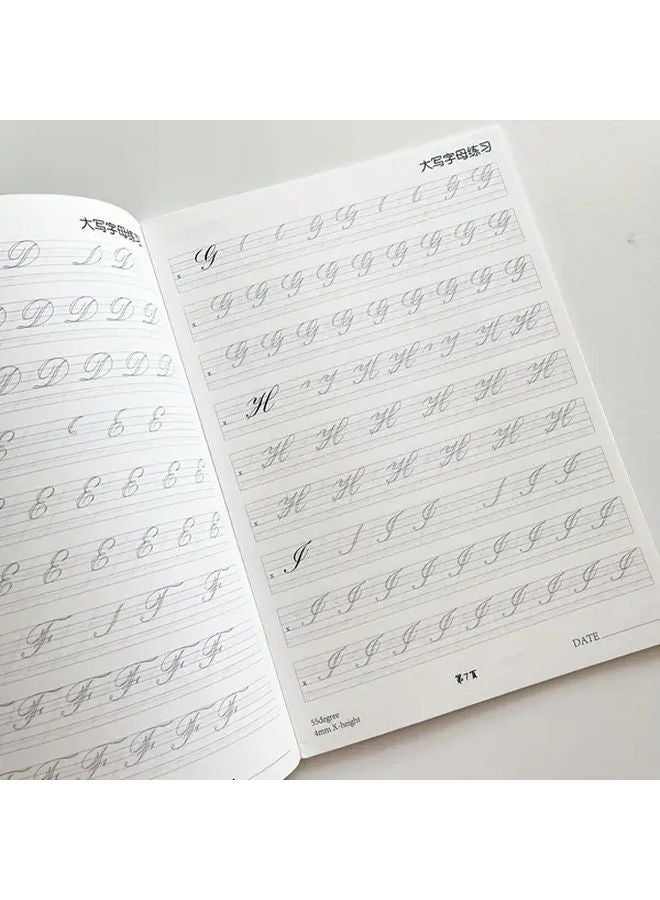 大写字母练习
D D
D D D D
D D D D D
E E E
E E E E E E
E E E E E E
F F F
F F F F F
F F F F
大写字母练习
x G G G G G
x G G G G G G G G G
x G G G G G G G G G
x H H H H H
x H H H H H H
x H H H H H H
x I I I I I
x I I I I I I I I I
x I I I I I I I I I
DATE
第7页
55degree
4mm X-height